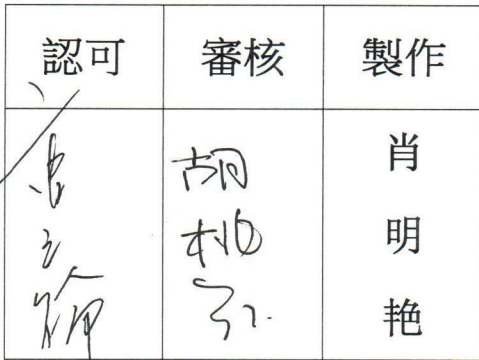 認可 審核 製作
胡桃紅
肖明艳